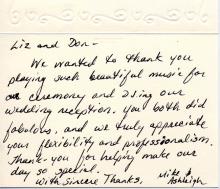 Liz and Don-
We wanted to thank you
playing such beautiful music for
our ceremony and during our
wedding reception. You both did
fabulous, and we truly appreciate
your flexibility and professionalism.
Thank-you for helping make our
day so special.
With Sincere Thanks,
Mike &
Ashleigh